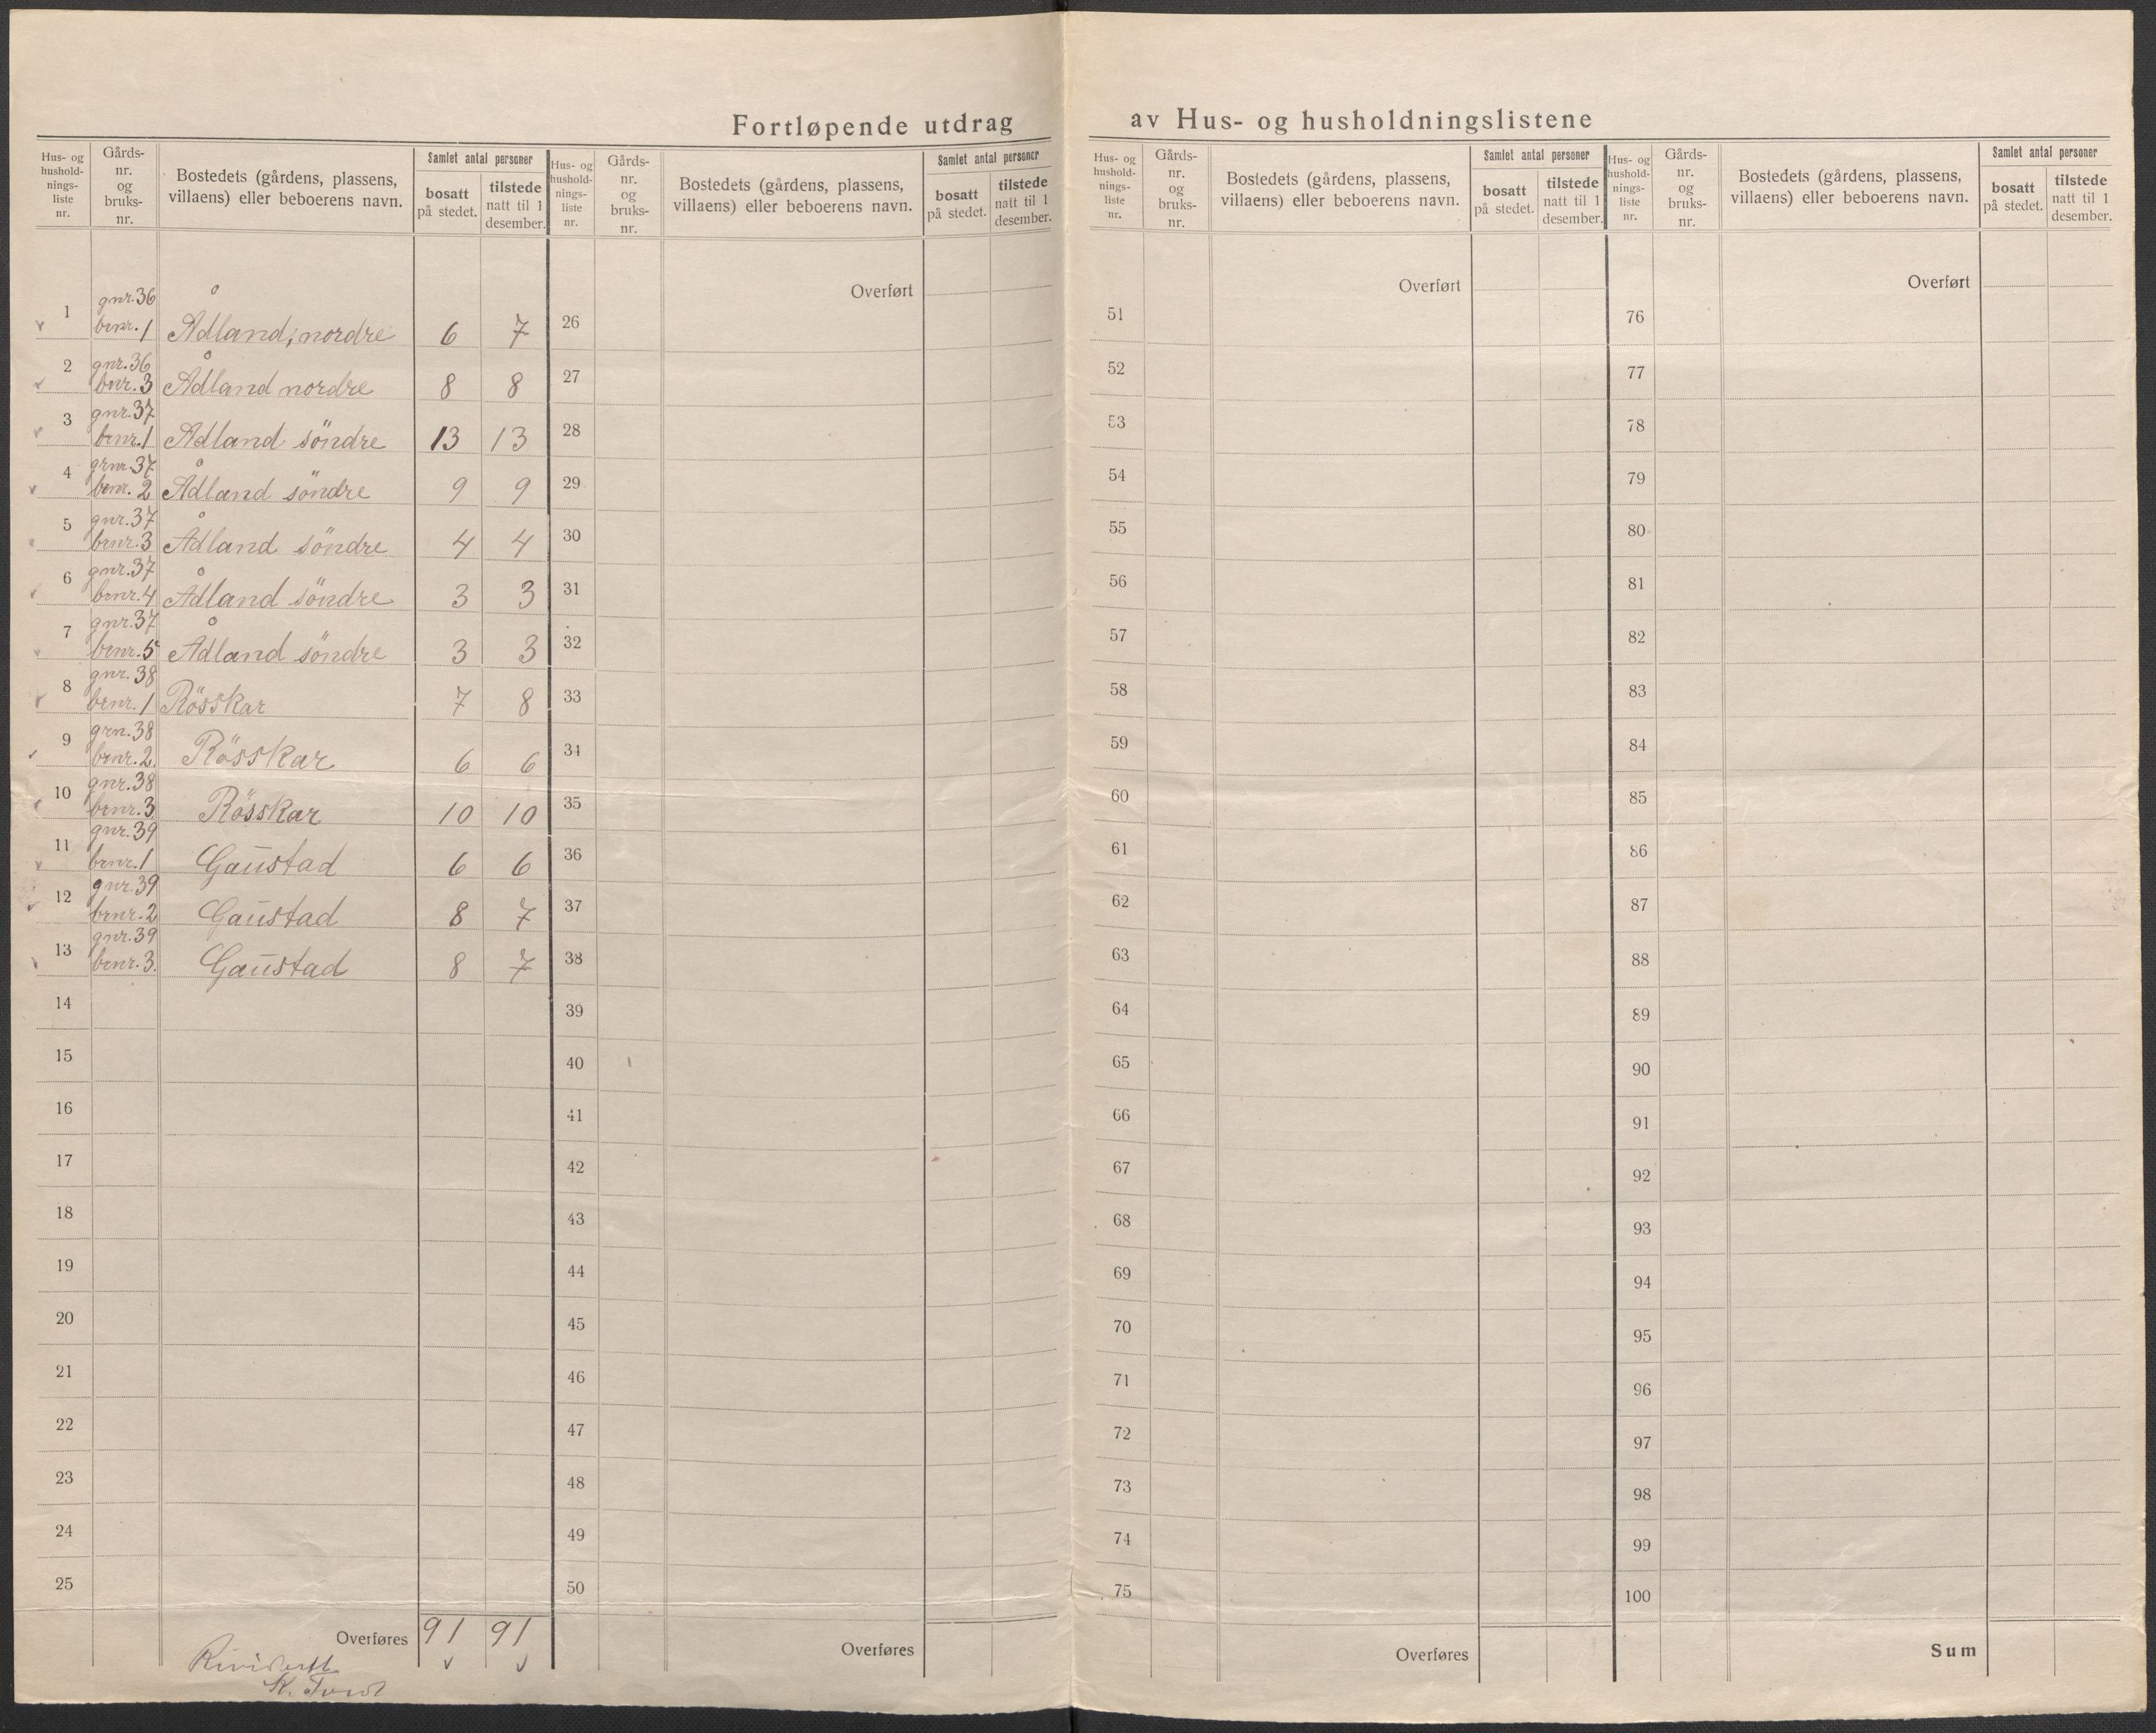 Fortløpende utdrag av Hus- og husholdningslistene
Hus- og hushold-nings-liste nr. | Gårds-nr. og bruks-nr. | Bostedets (gårdens, plassens, villaens) eller beboerens navn. | Samlet antal personer | bosatt på stedet. | tilstede natt til 1 desember.
1 gnr. 36 brnr. 1 Ådland, nordre 6 7
2 gnr. 36 bnr. 3 Ådland nordre 8 8
3 gnr. 37 brnr. 1 Adland söndre 13 13
4 grnr. 37 brnr. 2 Ådland söndre 9 9
5 gnr. 37 brnr. 3 Ådland söndre 4 4
6 gnr. 37 brnr. 4 Ådland söndre 3 3
7 gnr. 37 brnr. 5 Ådland söndre 3 3
8 gnr. 38 brnr. 1 Rösskar 7 8
9 grn. 38 brnr. 2. Rösskar 6 6
10 gnr. 38 brnr. 3. Rösskar 10 10
11 gnr. 39 brnr. 1 Gaustad 6 6
12 gnr. 39 brnr. 2 Gaustad 8 7
13 gnr. 39 brnr. 3. Gaustad 8 7
14
15
16
17
18
19
20
21
22
23
24
25
Overføres 91 91
K.
Hus- og hushold-nings-liste nr. | Gårds-nr. og bruks-nr. | Bostedets (gårdens, plassens, villaens) eller beboerens navn. | Samlet antal personer | bosatt på stedet. | tilstede natt til 1 desember.
Overført
26
27
28
29
30
31
32
33
34
35
36
37
38
39
40
41
42
43
44
45
46
47
48
49
50
Overføres
Hus- og hushold-nings-liste nr. | Gårds-nr. og bruks-nr. | Bostedets (gårdens, plassens, villaens) eller beboerens navn. | Samlet antal personer | bosatt på stedet. | tilstede natt til 1 desember.
Overført
51
52
53
54
55
56
57
58
59
60
61
62
63
64
65
66
67
68
69
70
71
72
73
74
75
Overføres
Hus- og hushold-nings-liste nr. | Gårds-nr. og bruks-nr. | Bostedets (gårdens, plassens, villaens) eller beboerens navn. | Samlet antal personer | bosatt på stedet. | tilstede natt til 1 desember.
Overført
76
77
78
79
80
81
82
83
84
85
86
87
88
89
90
91
92
93
94
95
96
97
98
99
100
Sum